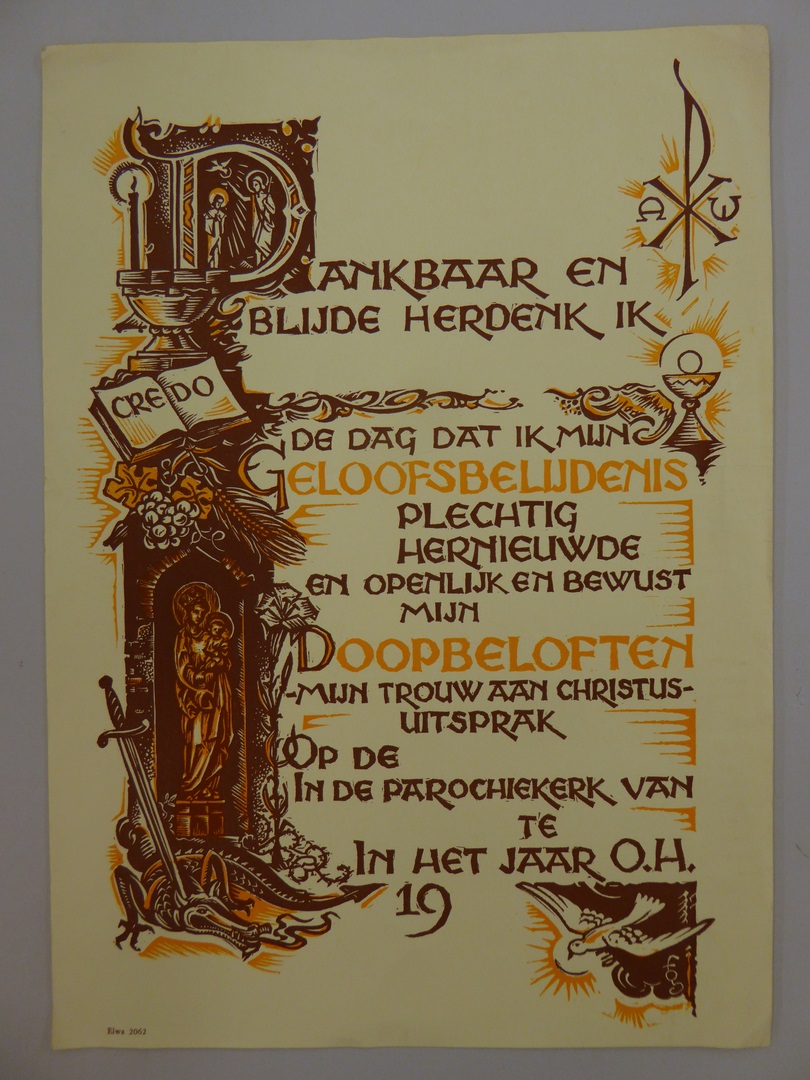 DANKBAAR EN
BLIJDE HERDENK IK
CREDO
DE DAG DAT IK MIJN
GELOOFSBELIJDENIS
PLECHTIG
HERNIEUWDE
EN OPENLIJK EN BEWUST
MIJN
DOOPBELOFTEN
-MIJN TROUW AAN CHRISTUS-
UITSPRAK
OP DE
IN DE PAROCHIEKERK VAN
TE
IN HET JAAR O.H.
19
Elwa 2062